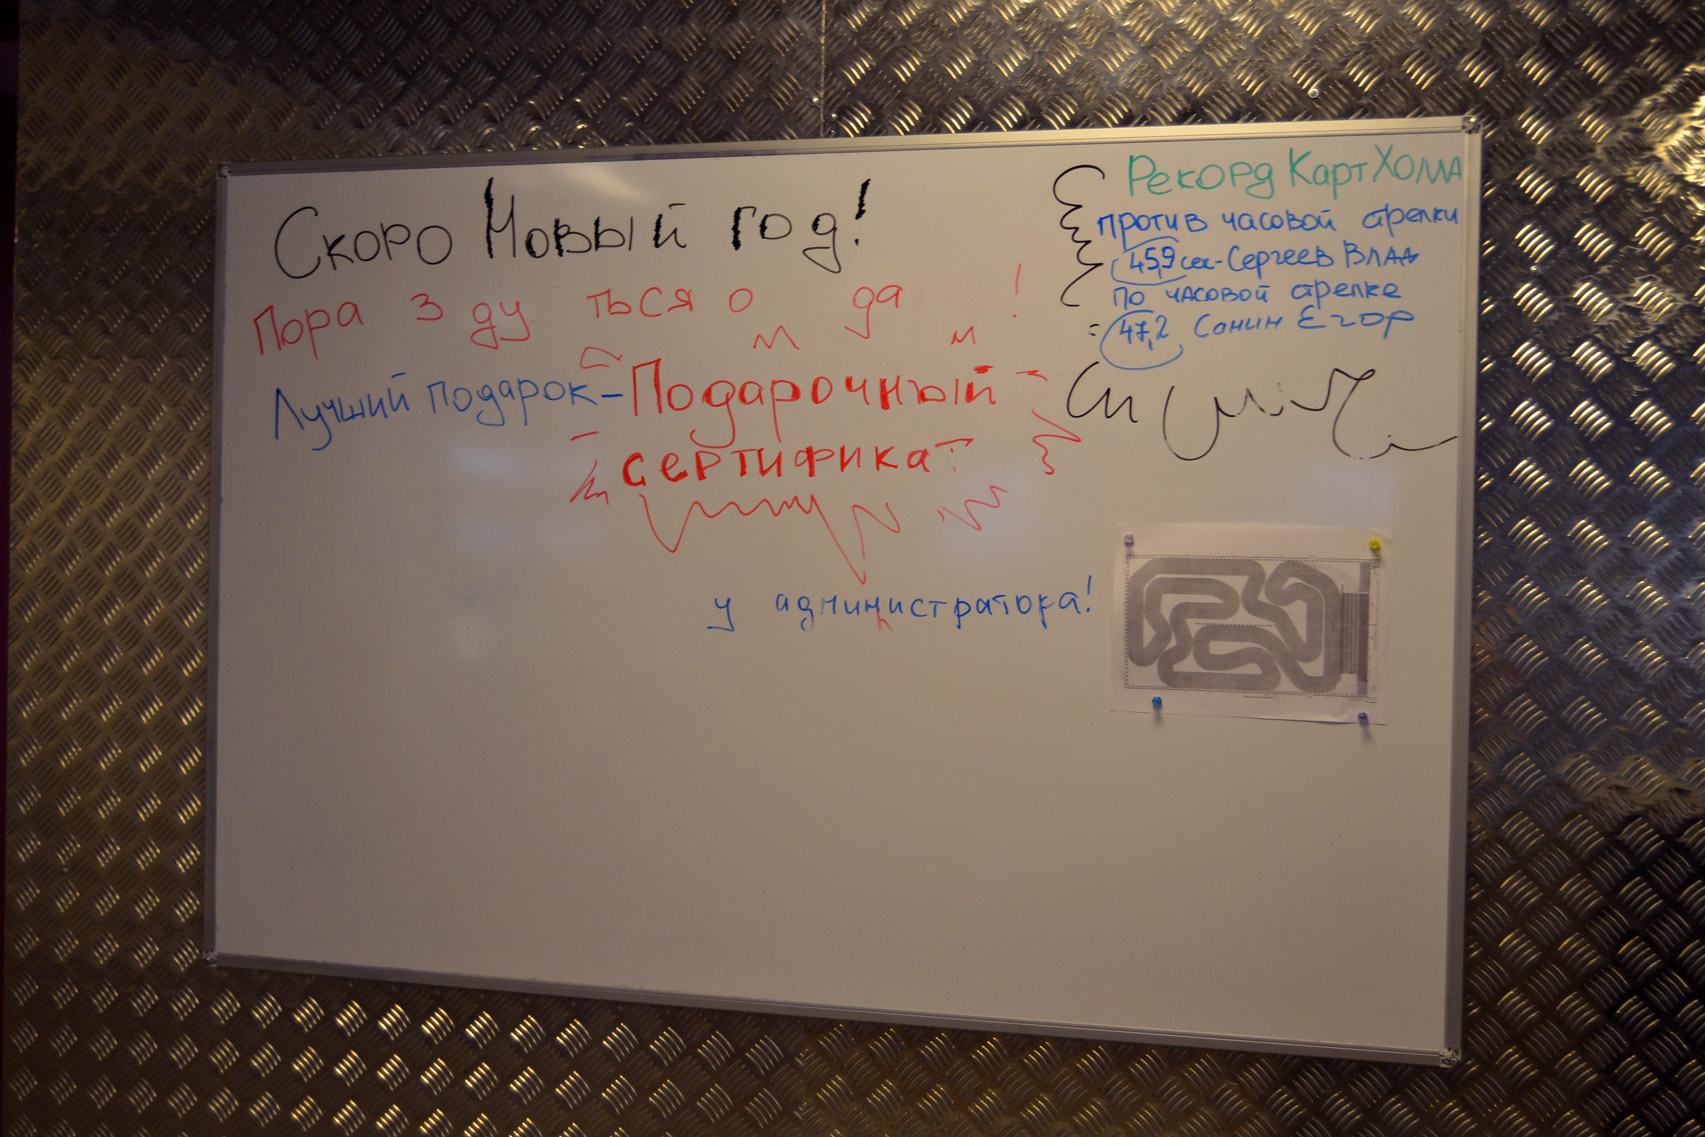 Скоро Новый год!
Пора З ду ться о да !
Лучший подарок - Подарочный
сертификат
у администратора!
Рекорд КартХолла
против часовой стрелки
45,9 сек - Сергеев Влад
по часовой стрелке
47,2 Санин Егор